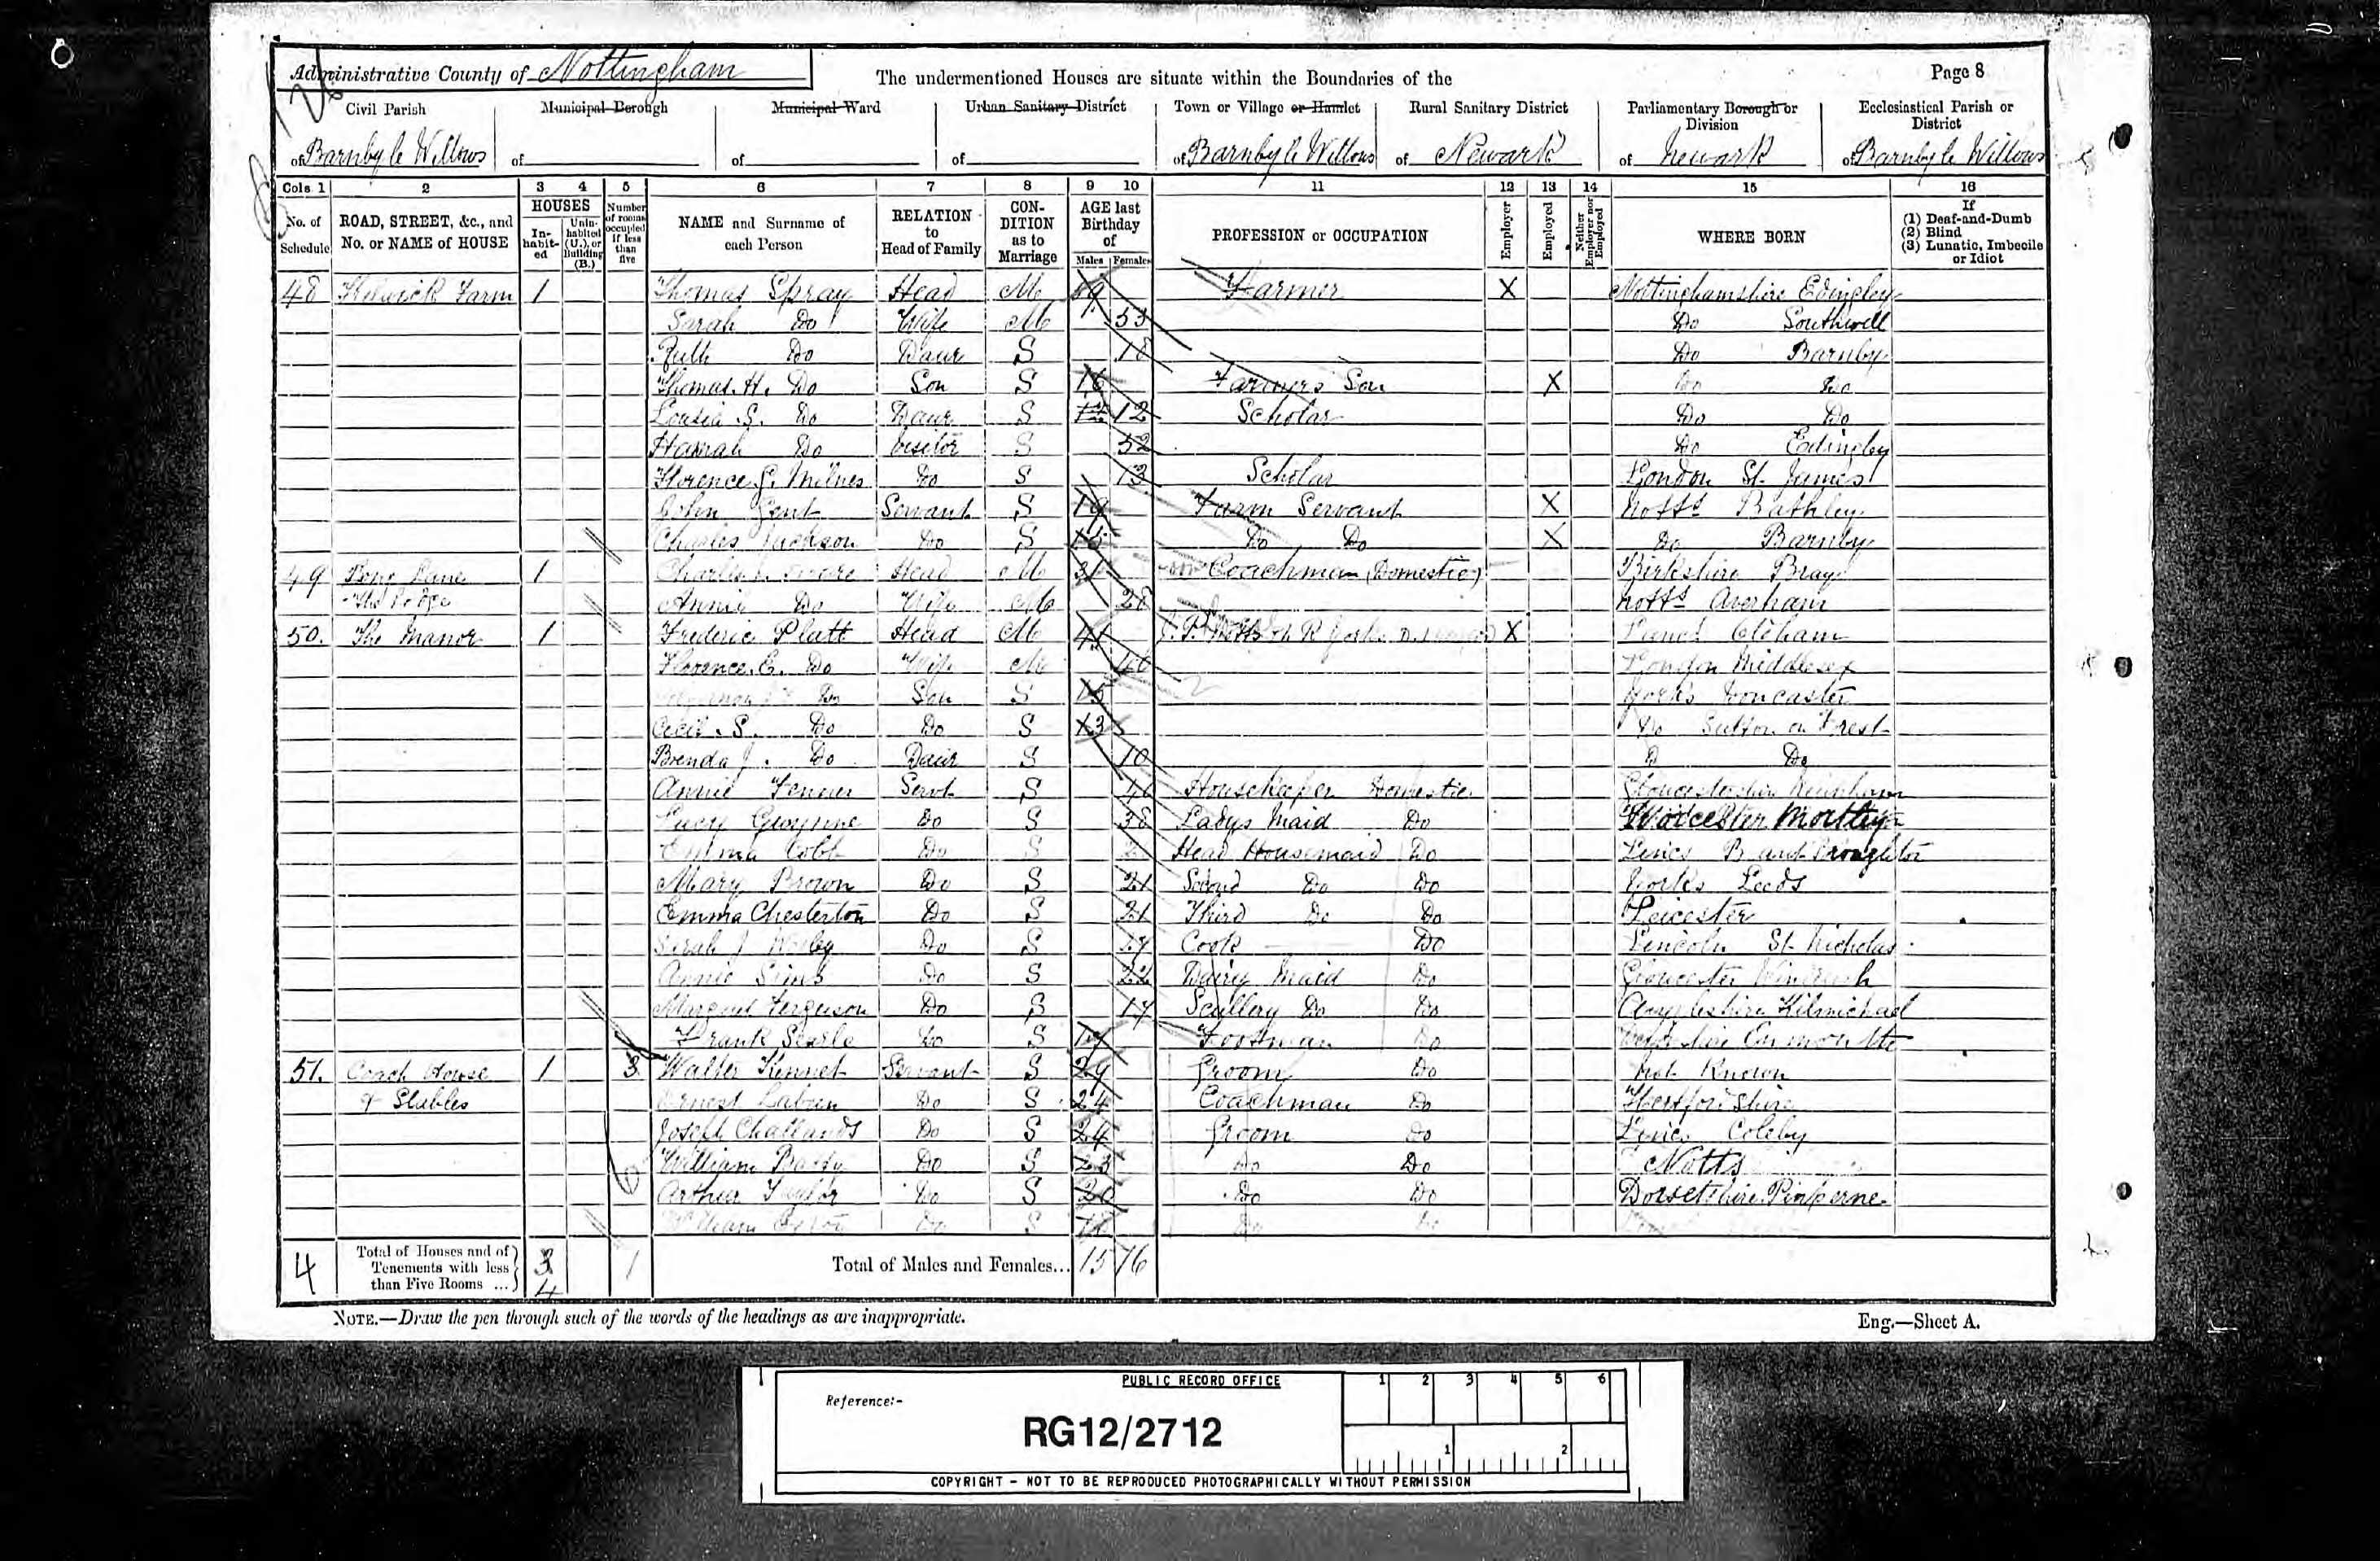 Administrative County of Nottingham
The undermentioned Houses are situate within the Boundaries of the
Page 8
Civil Parish
Municipal Borough
Municipal Ward
Urban Sanitary District
Town or Village or Hamlet
Rural Sanitary District
Parliamentary Borough or Division
Ecclesiastical Parish or District
of Barnby le Willows of of of of Barnby le Willows of Newark of Newark of Barnby le Willows
Cols. 1 2 3 4 5 6 7 8 9 10 11 12 13 14 15 16
No. of Schedule
ROAD, STREET, &c., and No. or NAME of HOUSE
HOUSES
Inhabited
Uninhabited (U.), or Building (B.)
Number of rooms occupied if less than five
NAME and Surname of each Person
RELATION to Head of Family
CONDITION as to Marriage
AGE last Birthday of
Males Females
PROFESSION or OCCUPATION
Employer
Employed
Neither Employer nor Employed
WHERE BORN
If
(1) Deaf-and-Dumb
(2) Blind
(3) Lunatic, Imbecile or Idiot
48 Farm 1 Thomas Spray Head M 59 Farmer X Nottinghamshire Edingley
Sarah Do Wife M 53 Do Southwell
Ruth Do Daur S 18 Do Barnby
Thomas. H. Do Son S 16 Farmers Son X Do Do
Louisa S. Do Daur S 12 12 Scholar Do Do
Hannah Do Visitor S 52 Do Edingley
Florence G. Milnes Do S 13 Scholar London St. James
John Gent Servant S 19 Farm Servant X Notts Bathley
Charles Jackson Do S Do Do X Do Barnby
49 Lane 1 Charles Head M 31 Coachman (Domestic) Birkshire Bray
The Lodge Annie Do Wife M 28 Notts Averham
50. The Manor 1 Frederic Platt Head M J.P. X Oldham
Florence. E. Do Wife M London Middlesex
Do Son S 15 Yorks Doncaster
Cecil. S. Do Do S 13 Do Sutton on Forest
Brenda J. Do Daur S 10 Do
Annie Fenner Servt S Housekeeper Domestic Gloucestershire
Lucy Gwynne Do S 38 Ladys Maid Do Worcester
Emma Cobb Do S Head Housemaid Do Lincs Broughton
Mary Brown Do S 21 Second Do Do Yorks Leeds
Emma Chesterton Do S 21 Third Do Do Leicester
Sarah J Do S 27 Cook Do Lincoln St. Nicholas
Annie Sims Do S 22 Dairy Maid Do Gloucester
Margaret Ferguson Do S 17 Scullery Do Do Kilmichael
Frank Searle Do S Footman Do
51. Coach House 1 3 Walter Kennet Servant S 29 Groom Do Not Known
& Stables Ernest Do S 24 Coachman Do Hertfordshire
Joseph Challands Do S 24 Groom Do Lincs Coleby
William Do S 23 Do Do Notts
Arthur Taylor Do S 20 Do Do Dorsetshire Pimperne
William Do S Do Do
4 Total of Houses and of Tenements with less than Five Rooms ... 3 4 1 Total of Males and Females... 15 16
NOTE.—Draw the pen through such of the words of the headings as are inappropriate.
Eng.—Sheet A.
PUBLIC RECORD OFFICE
Reference:-
RG12/2712
1 2 3 4 5 6
1 2
COPYRIGHT - NOT TO BE REPRODUCED PHOTOGRAPHICALLY WITHOUT PERMISSION